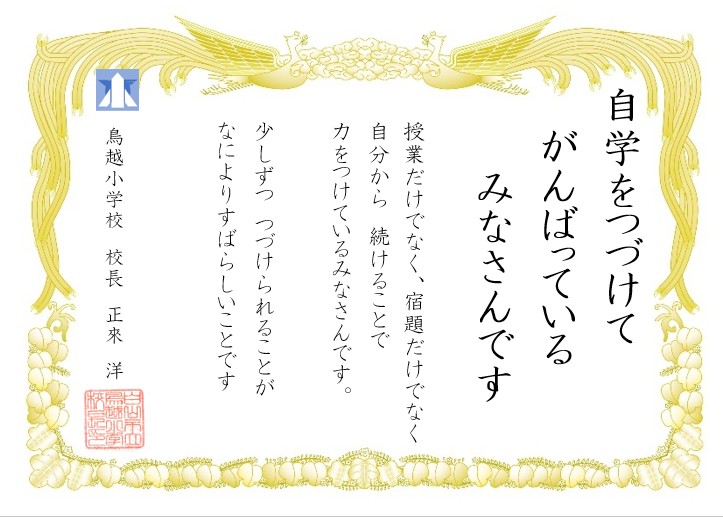 自学をつづけて
がんばっている
みなさんです
授業だけでなく、宿題だけでなく
自分から 続けることで
力をつけているみなさんです。
少しずつ つづけられることが
なによりすばらしいことです
鳥越小学校 校長 正來 洋